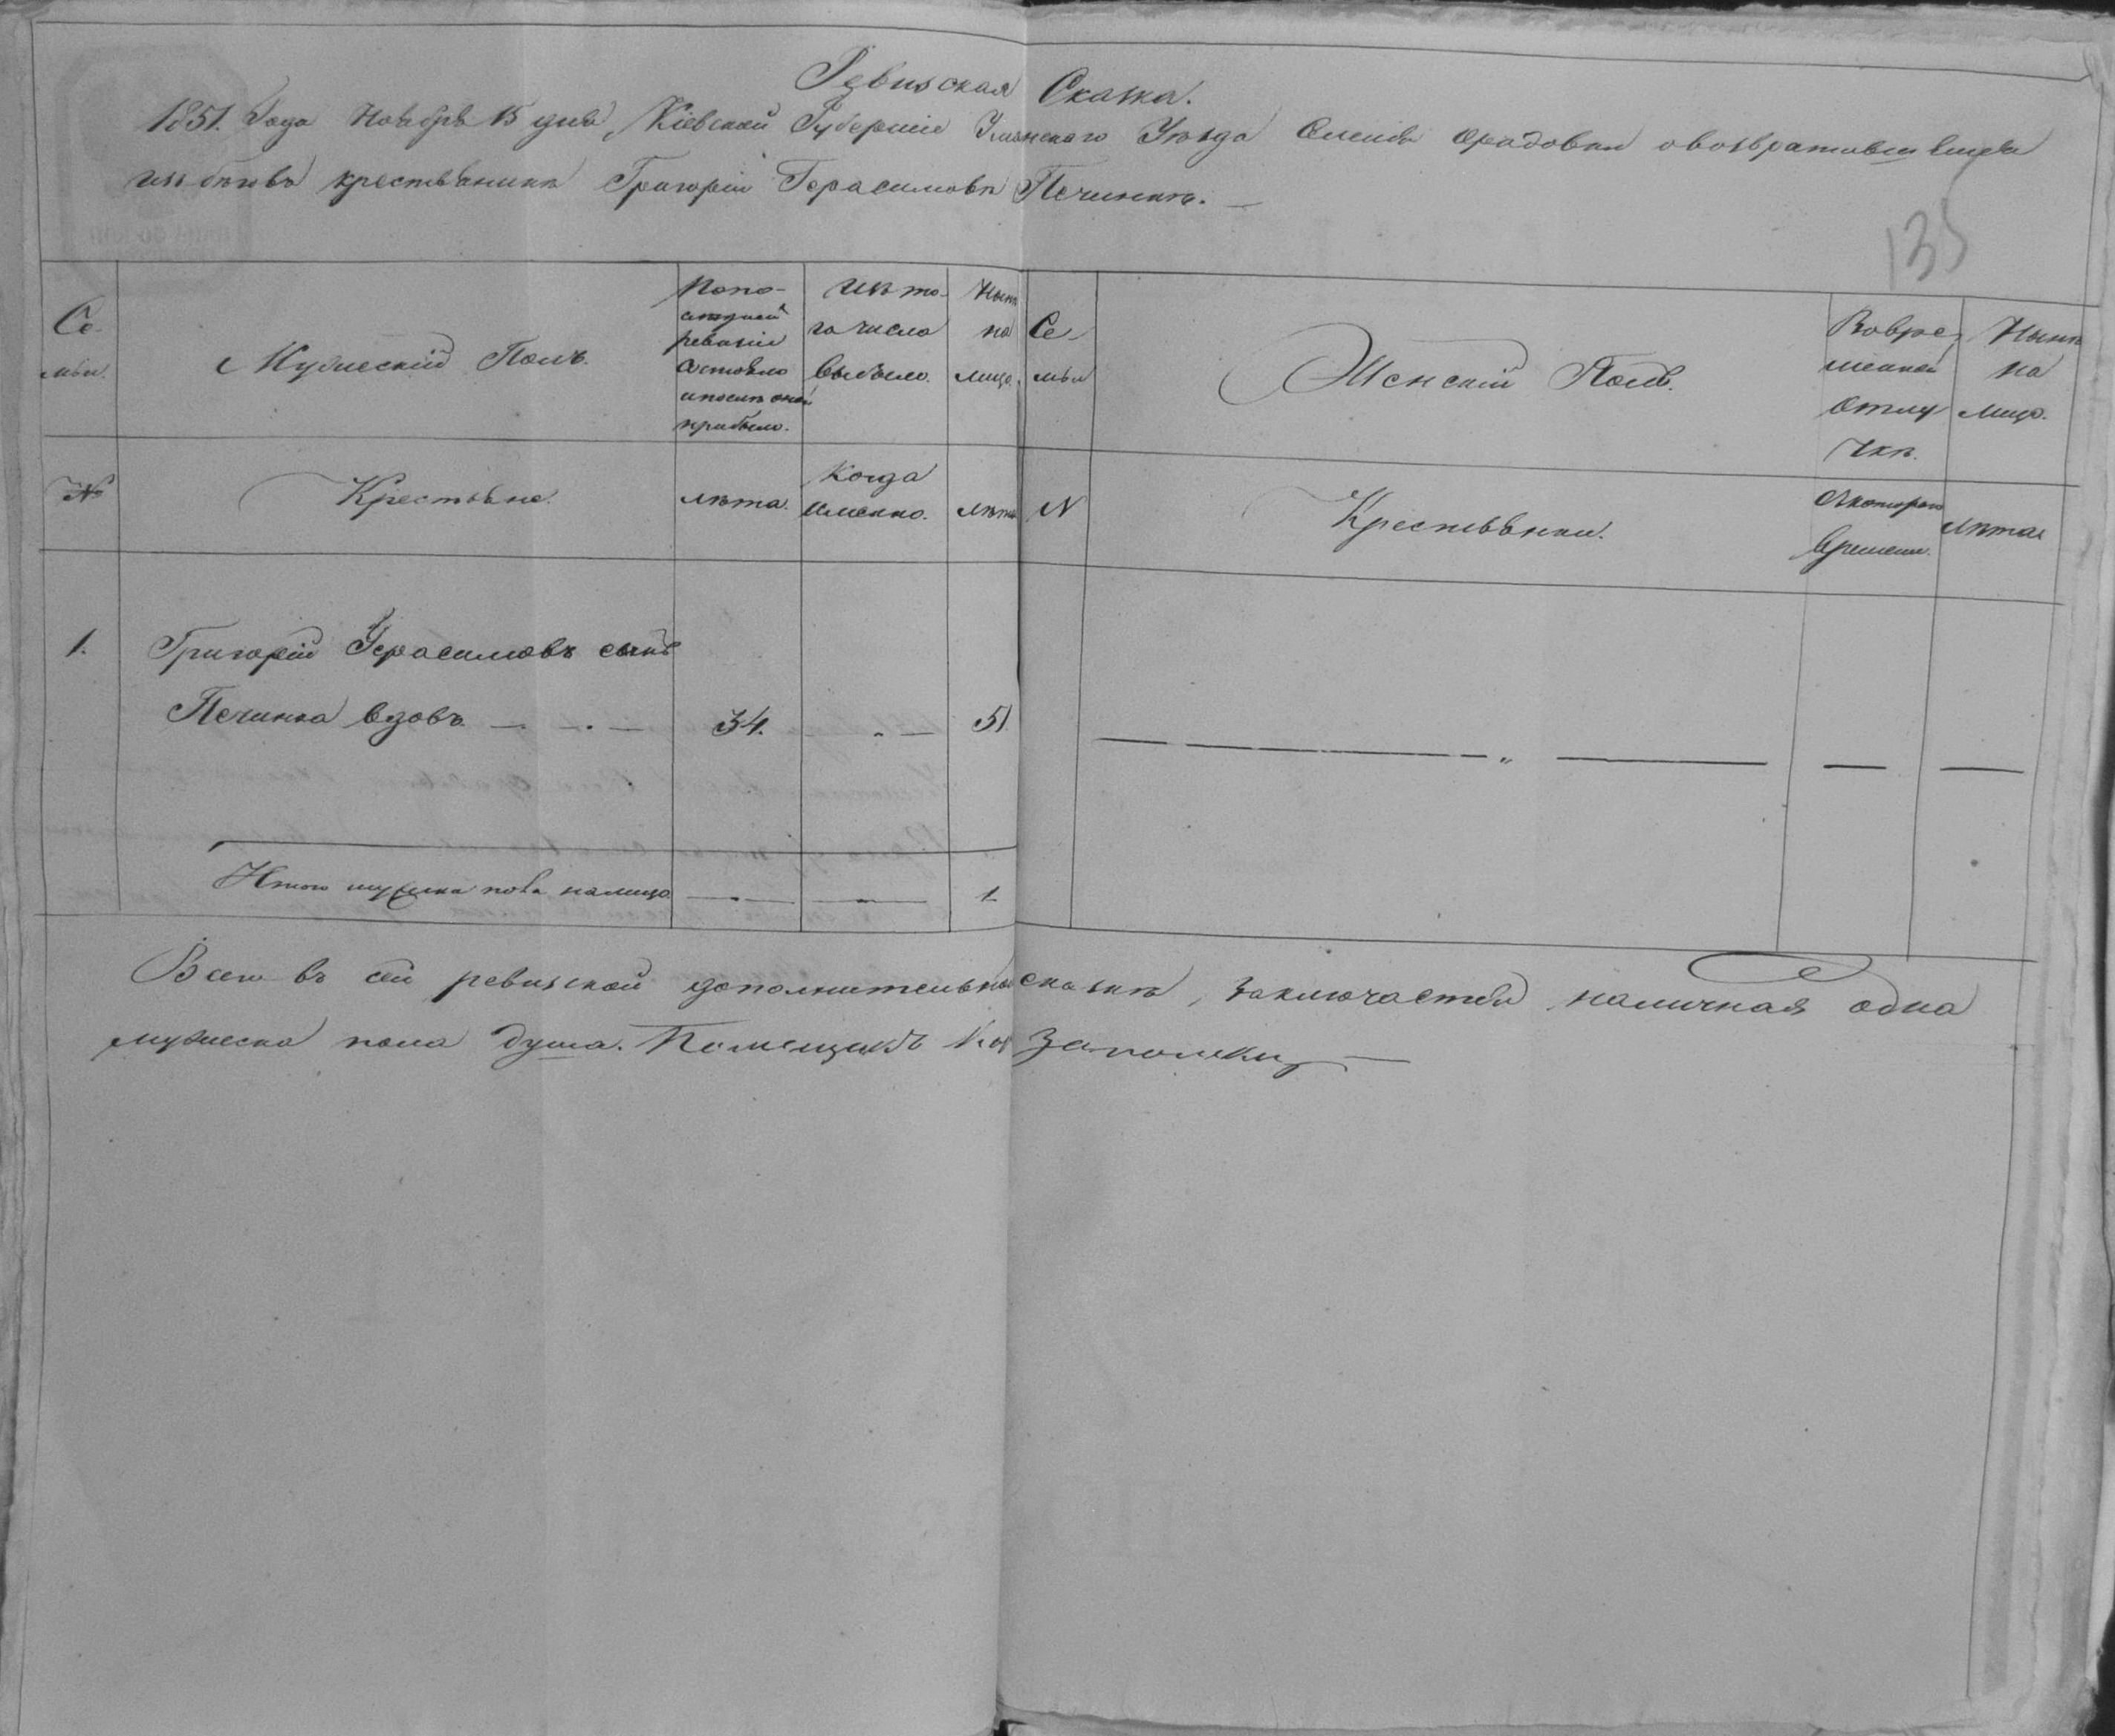 Ревизская Сказка.
1851. Года Ноября 15 дня, Кіевской Губерніи Уманского Уезда Селенія Орадовки овозвратившемся
изъ беговъ крестьянине Григоріи Герасимове Печинке. —
135
Се-
мьи.
Мужескій Полъ.
Попо-
следней
ревизіи
состояло
ипосле оной
прибыло.
Изъ то-
го числа
выбыло.
Ныне
на
лицо.
Се-
мьи
Женскій Полъ.
Вовре-
менной
отлу
чке.
Ныне
на
лицо.
№
Крестьяне.
лета.
Когда
именно.
лета
N
Крестьянки.
Скотораго
времени.
лета
1.
Григорій Герасимовъ сынъ
Печинка вдовъ — . — 34. — „ — 51.
— — „ — — —
Итого мужеска пола налицо — — 1
Всего въ сей ревизской дополнительной сказке, заключается наличная одна
мужеска пола душа. Помещикъ